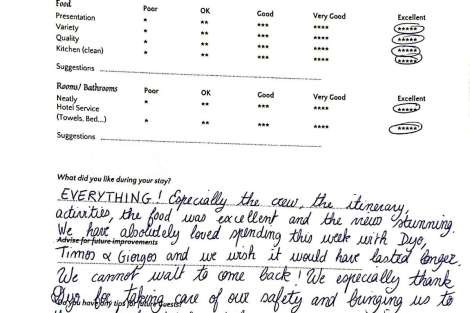 Food Poor OK Good Very Good Excellent
Presentation * ** *** **** *****
Variety * ** *** **** *****
Quality * ** *** **** *****
Kitchen (clean) * ** *** **** *****
Suggestions
Rooms/ Bathrooms Poor OK Good Very Good Excellent
Neatly * ** *** **** *****
Hotel Service
(Towels, Bed...) * ** *** **** *****
Suggestions
What did you like during your stay?
EVERYTHING! Especially the crew, the itinerary,
activities, the food was excellent and the views stunning.
We have absolutely loved spending this week with Dyo,
Advise for future improvements
Timos & Giorgos and we wish it would have lasted longer.
We cannot wait to come back! We especially thank
Dyo for taking care of our safety and bringing us to
Do you have any tips for future guests?